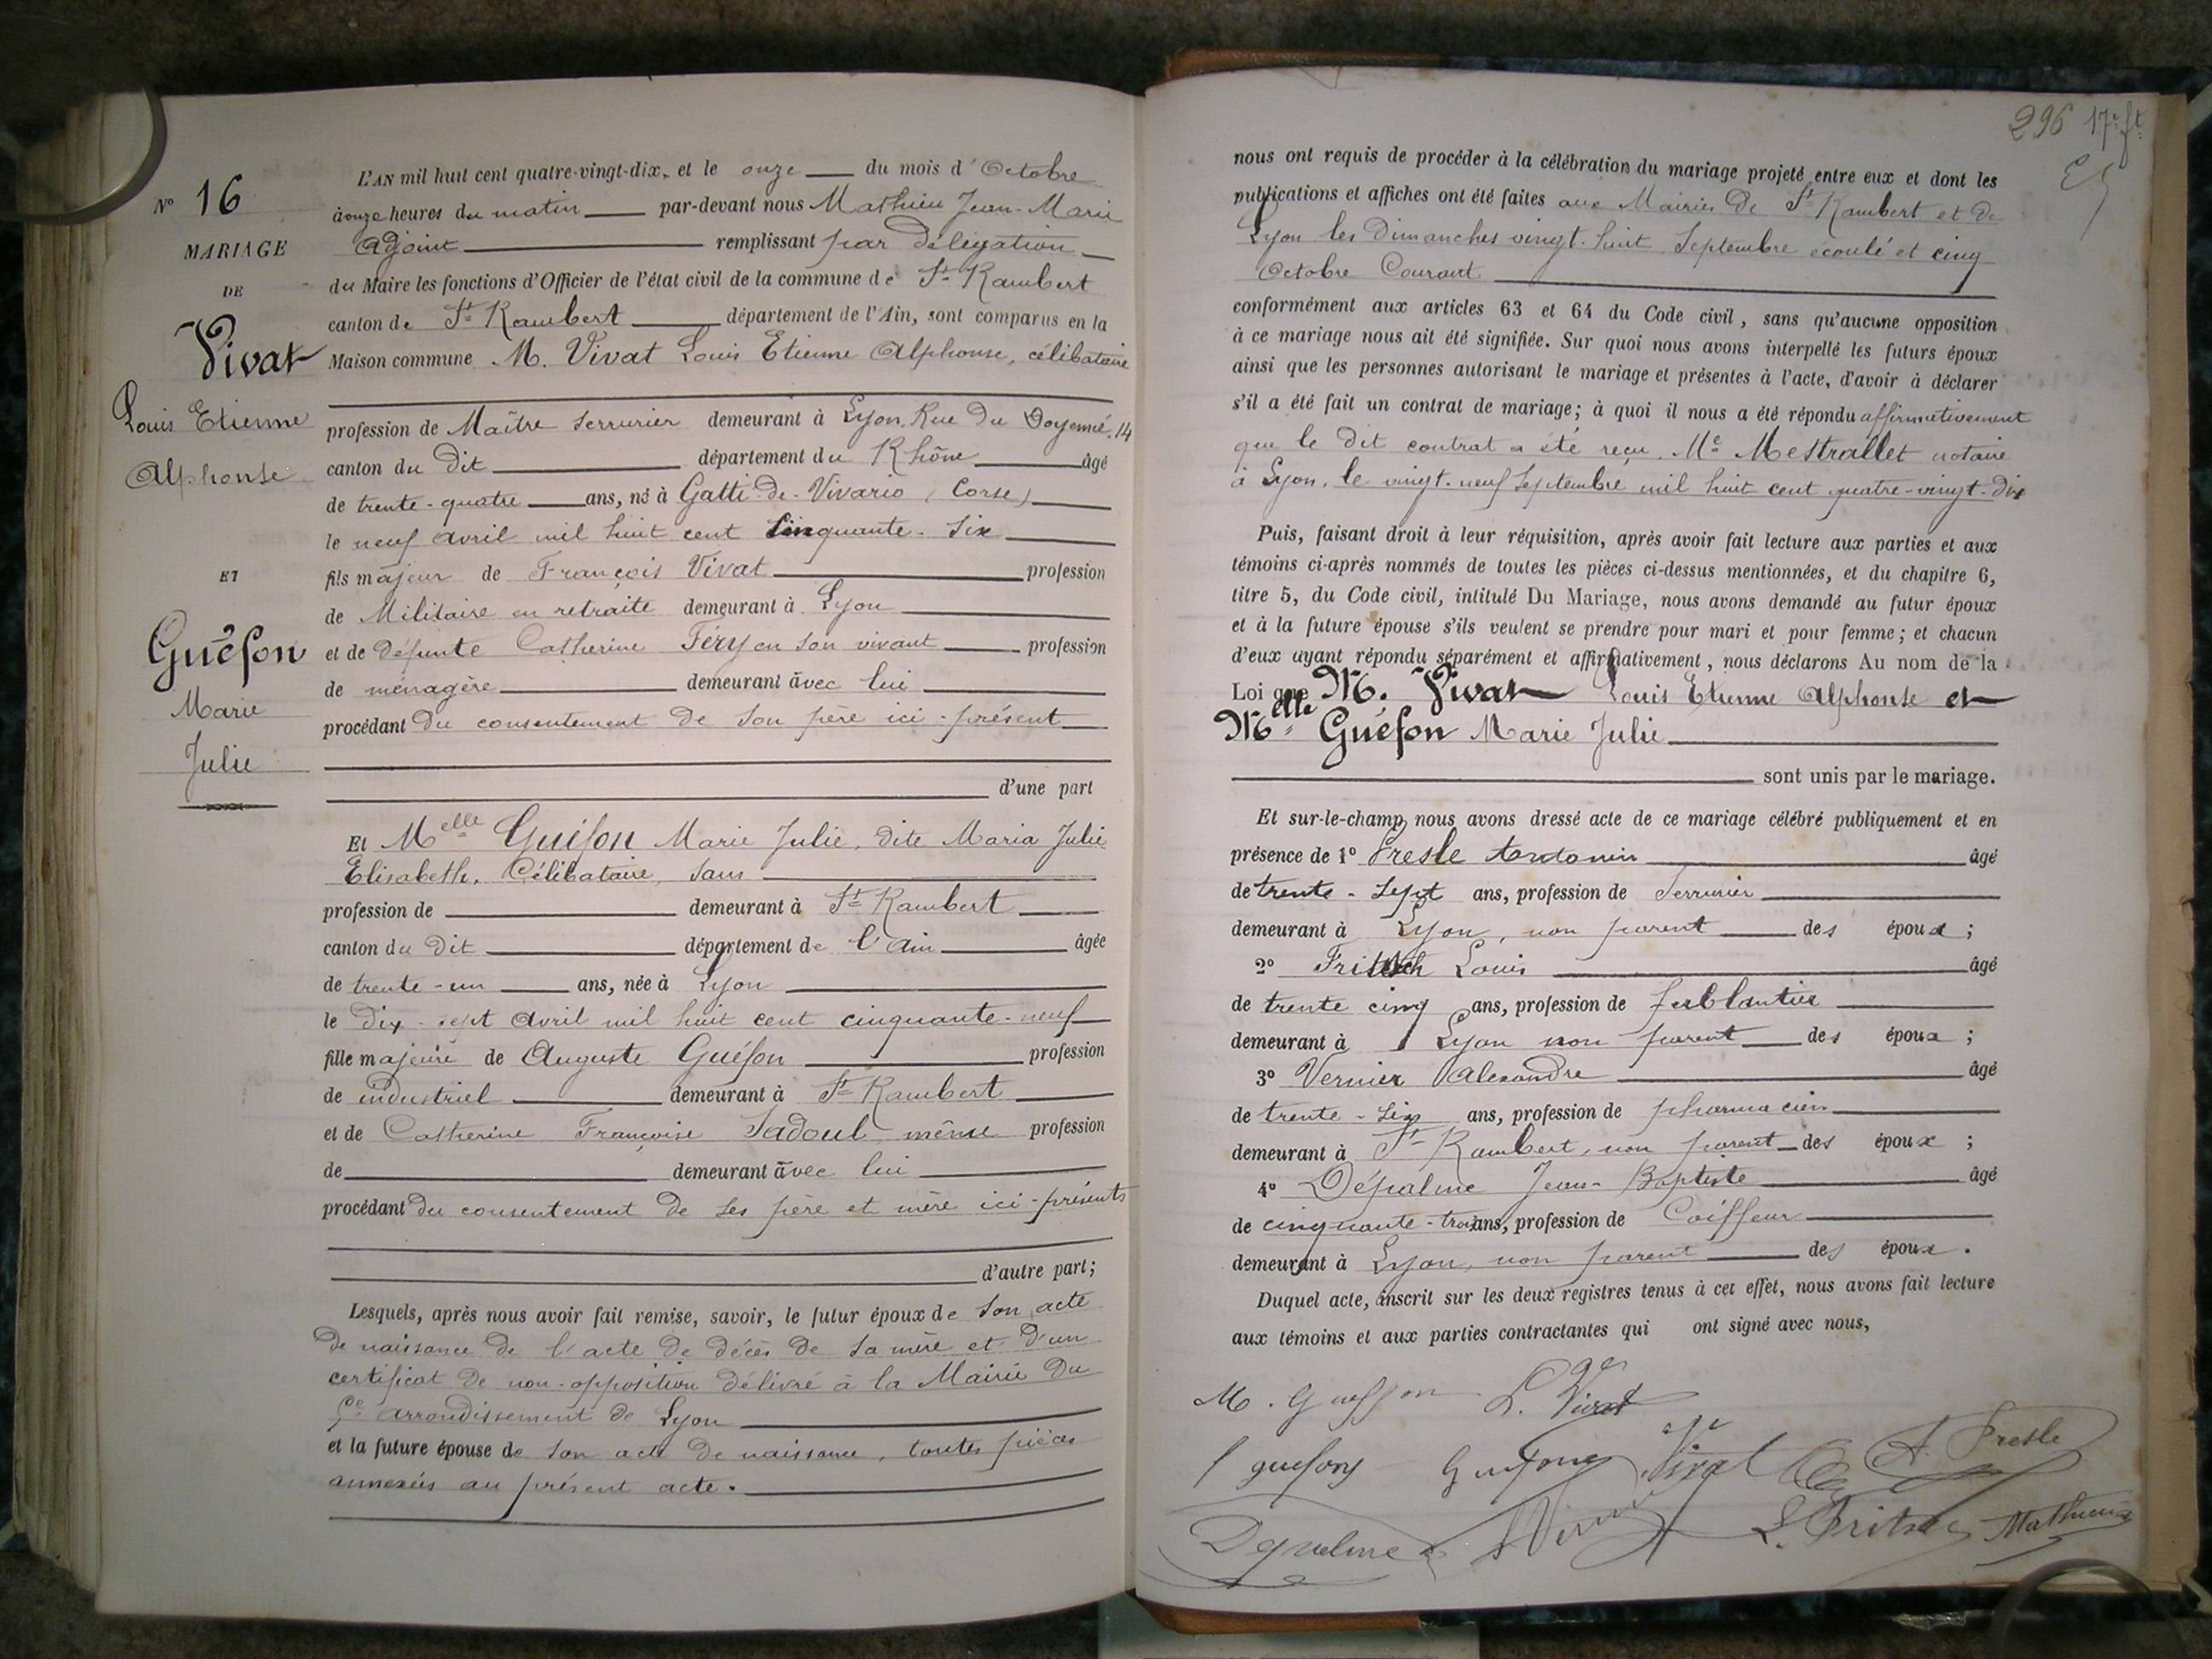 N° 16
MARIAGE
DE
Vivat
Louis Etienne
Alphonse
ET
Guéfon
Marie
Julie
L'AN mil huit cent quatre-vingt-dix, et le onze du mois d'Octobre
à onze heures du matin par-devant nous Mathieu Jean-Marie
Adjoint remplissant par délégation
du Maire les fonctions d'Officier de l'état civil de la commune de St Rambert
canton de St Rambert département de l'Ain, sont comparus en la
Maison commune M. Vivat Louis Etienne Alphonse, célibataire
profession de Maître serrurier demeurant à Lyon, Rue du Doyenné, 14
canton du dit département du Rhône âgé
de trente-quatre ans, né à Gatti-de-Vivario (Corse)
le neuf avril mil huit cent cinquante-six
fils majeur de François Vivat profession
de Militaire en retraite demeurant à Lyon
et de défunte Catherine Féry en son vivant profession
de ménagère demeurant avec lui
procédant du consentement de son père ici-présent
d'une part
Et Melle Guéfon Marie Julie, dite Maria Julie
Elisabeth, Célibataire, sans
profession de demeurant à St Rambert
canton du dit département de l'Ain âgée
de trente-un ans, née à Lyon
le dix-sept avril mil huit cent cinquante-neuf
fille majeure de Auguste Guéfon profession
de industriel demeurant à St Rambert
et de Catherine Françoise Sadoul même profession
de demeurant avec lui
procédant du consentement de ses père et mère ici-présents
d'autre part;
Lesquels, après nous avoir fait remise, savoir, le futur époux de son acte
de naissance de l'acte de décès de sa mère et d'un
certificat de non-opposition délivré à la Mairie du
5e arrondissement de Lyon
et la future épouse de son acte de naissance, toutes pièces
annexées au présent acte.
296 17e ft
nous ont requis de procéder à la célébration du mariage projeté entre eux et dont les
publications et affiches ont été faites aux Mairies de St Rambert et de
Lyon les Dimanches vingt-huit Septembre écoulé et cinq
Octobre Courant
conformément aux articles 63 et 64 du Code civil, sans qu'aucune opposition
à ce mariage nous ait été signifiée. Sur quoi nous avons interpellé les futurs époux
ainsi que les personnes autorisant le mariage et présentes à l'acte, d'avoir à déclarer
s'il a été fait un contrat de mariage; à quoi il nous a été répondu affirmativement
que le dit contrat a été reçu Me Mestrallet notaire
à Lyon, le vingt-neuf Septembre mil huit cent quatre-vingt-dix
Puis, faisant droit à leur réquisition, après avoir fait lecture aux parties et aux
témoins ci-après nommés de toutes les pièces ci-dessus mentionnées, et du chapitre 6,
titre 5, du Code civil, intitulé Du Mariage, nous avons demandé au futur époux
et à la future épouse s'ils veulent se prendre pour mari et pour femme; et chacun
d'eux ayant répondu séparément et affirmativement, nous déclarons Au nom de la
Loi que M. Vivat Louis Etienne Alphonse et
Melle Guéfon Marie Julie
sont unis par le mariage.
Et sur-le-champ nous avons dressé acte de ce mariage célébré publiquement et en
présence de 1° Presle Antonin âgé
de trente-sept ans, profession de Serrurier
demeurant à Lyon, non parent des époux;
2° Fritsch Louis âgé
de trente cinq ans, profession de ferblantier
demeurant à Lyon non parent des époux;
3° Vernier Alexandre âgé
de trente-six ans, profession de pharmacien
demeurant à St Rambert, non parent des époux;
4° Dépalme Jean-Baptiste âgé
de cinquante-trois ans, profession de Coiffeur
demeurant à Lyon, non parent des époux.
Duquel acte, inscrit sur les deux registres tenus à cet effet, nous avons fait lecture
aux témoins et aux parties contractantes qui ont signé avec nous,
L. Vivat
Vivat
A. Presle
L. Fritsch
Mathieu